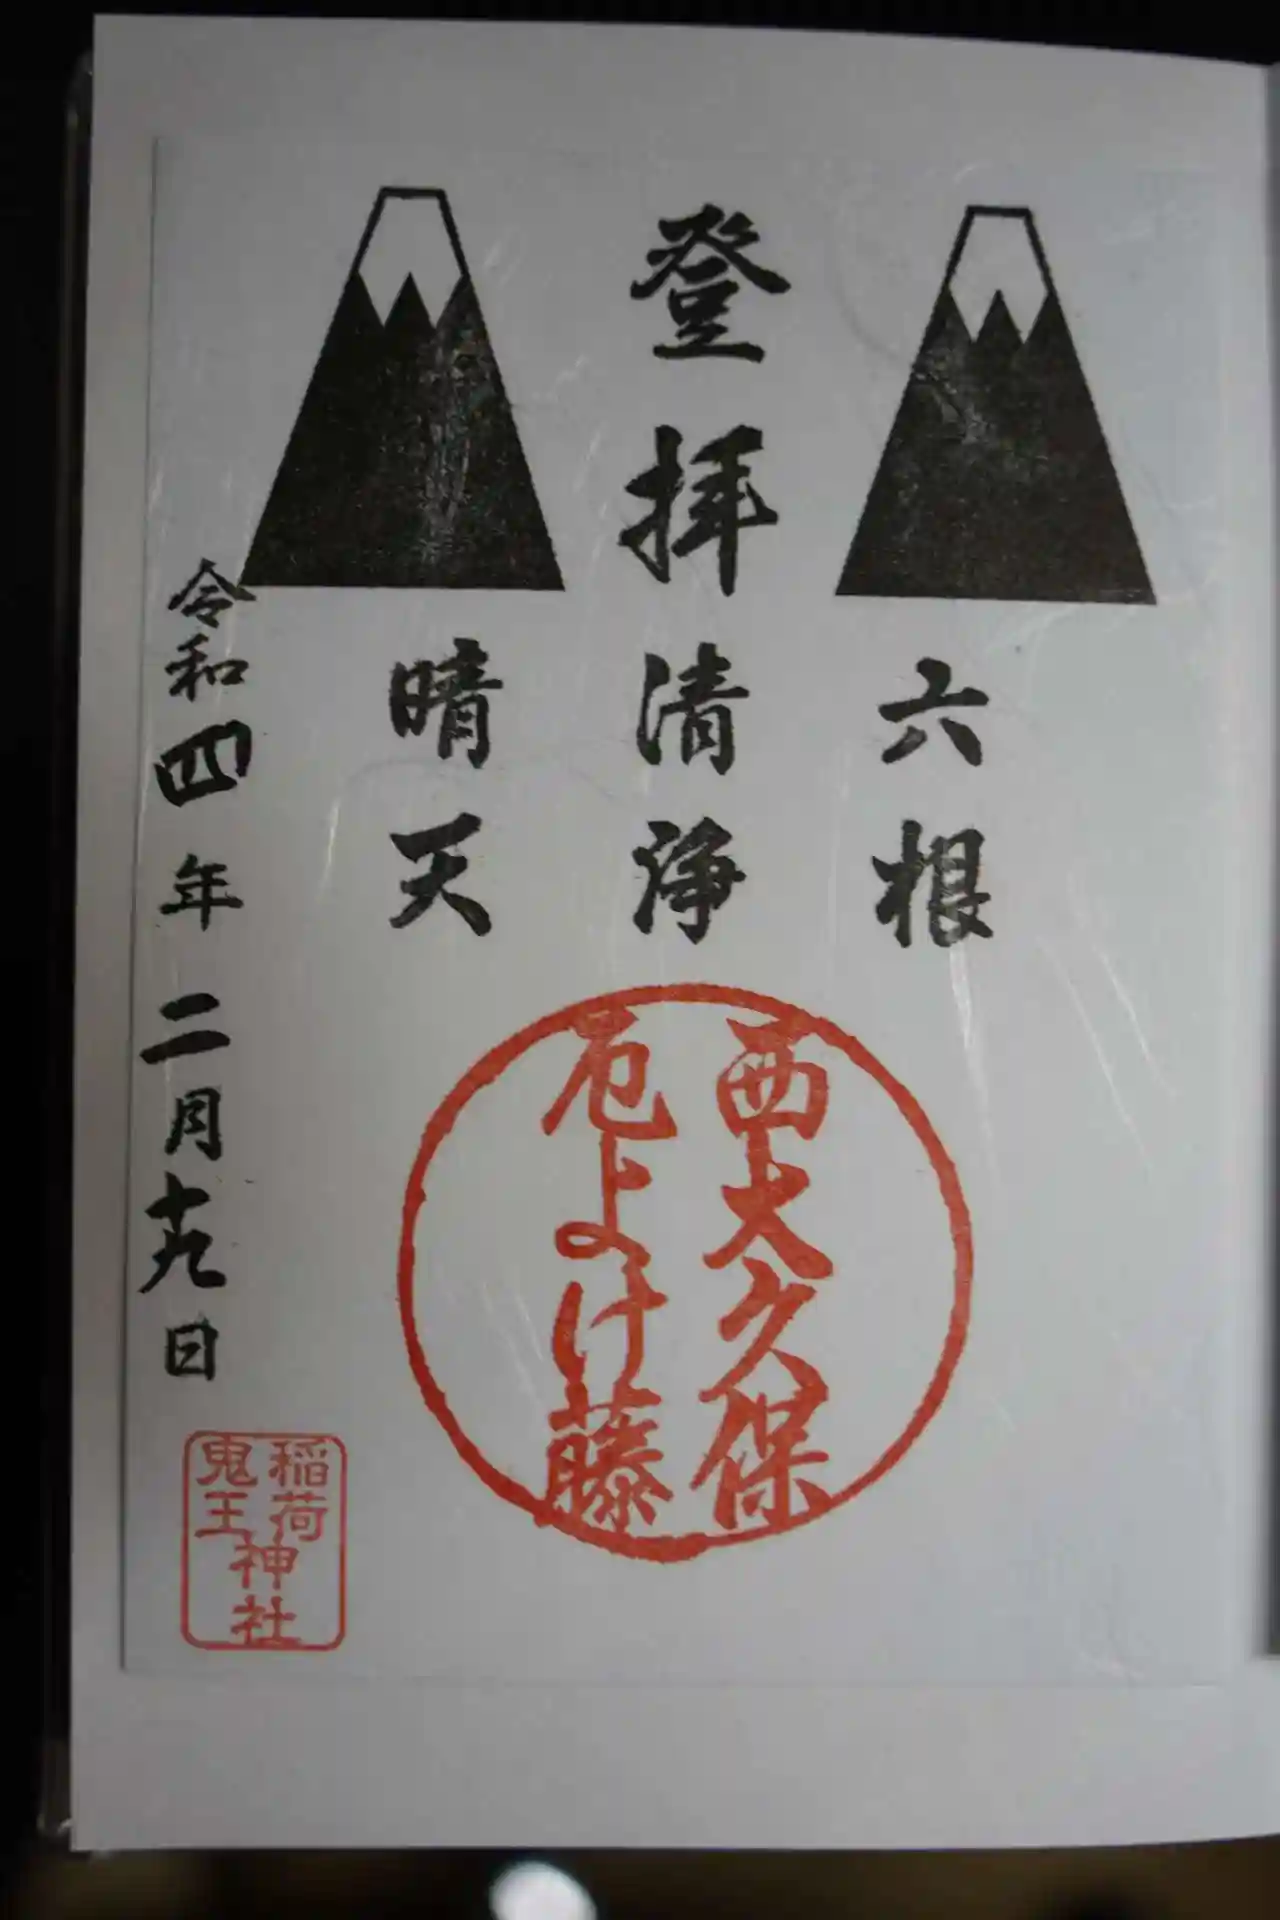 六根
登拝
清浄
晴天
西大久保
厄よけ藤
令和四年二月十九日
稲荷
鬼王
神社